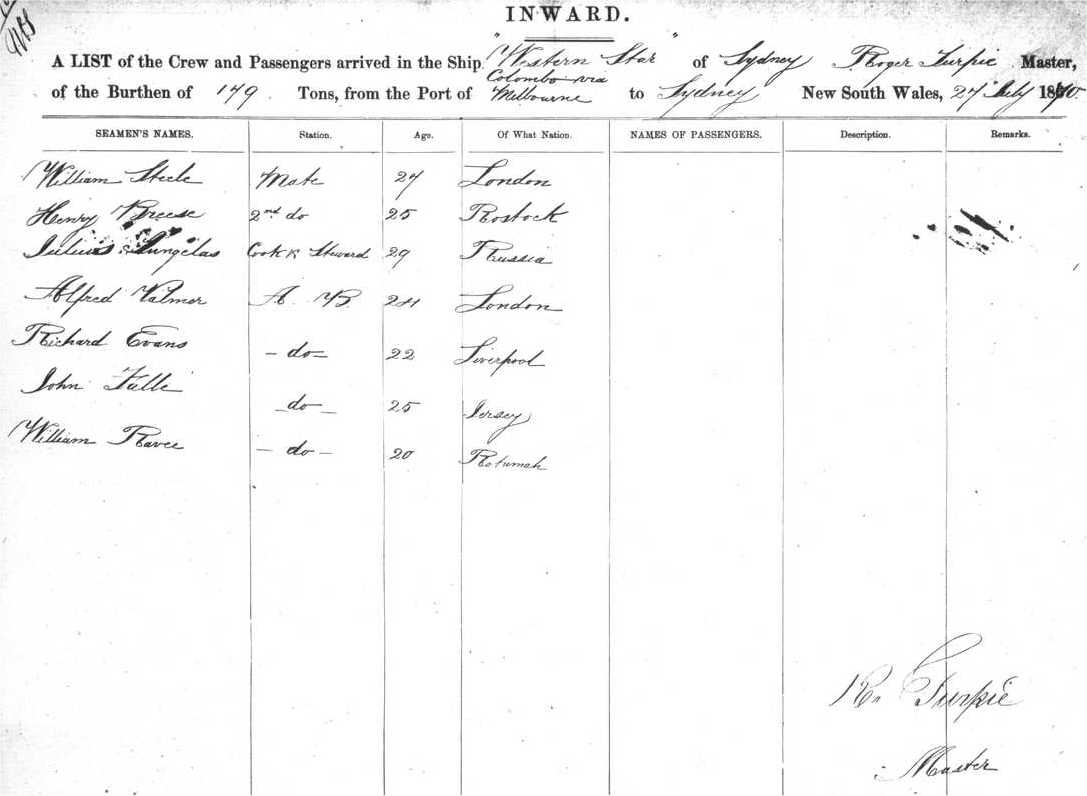 INWARD.
A LIST of the Crew and Passengers arrived in the Ship "Western Star" of Sydney Roger Turpie Master,
of the Burthen of 149 Tons, from the Port of Colombo via Melbourne to Sydney New South Wales, 24 July 1870
SEAMEN'S NAMES. Station. Age. Of What Nation. NAMES OF PASSENGERS. Description. Remarks.
William Steele Mate 27 London
Henry Breese 2nd do 25 Rostock
Julius Cook & Steward 29 Russia
Alfred Palmer A B 24 London
Richard Evans - do - 22 Liverpool
John Falle - do - 25 Jersey
William Ravee - do - 20 Rotumah
R. Turpie
Master